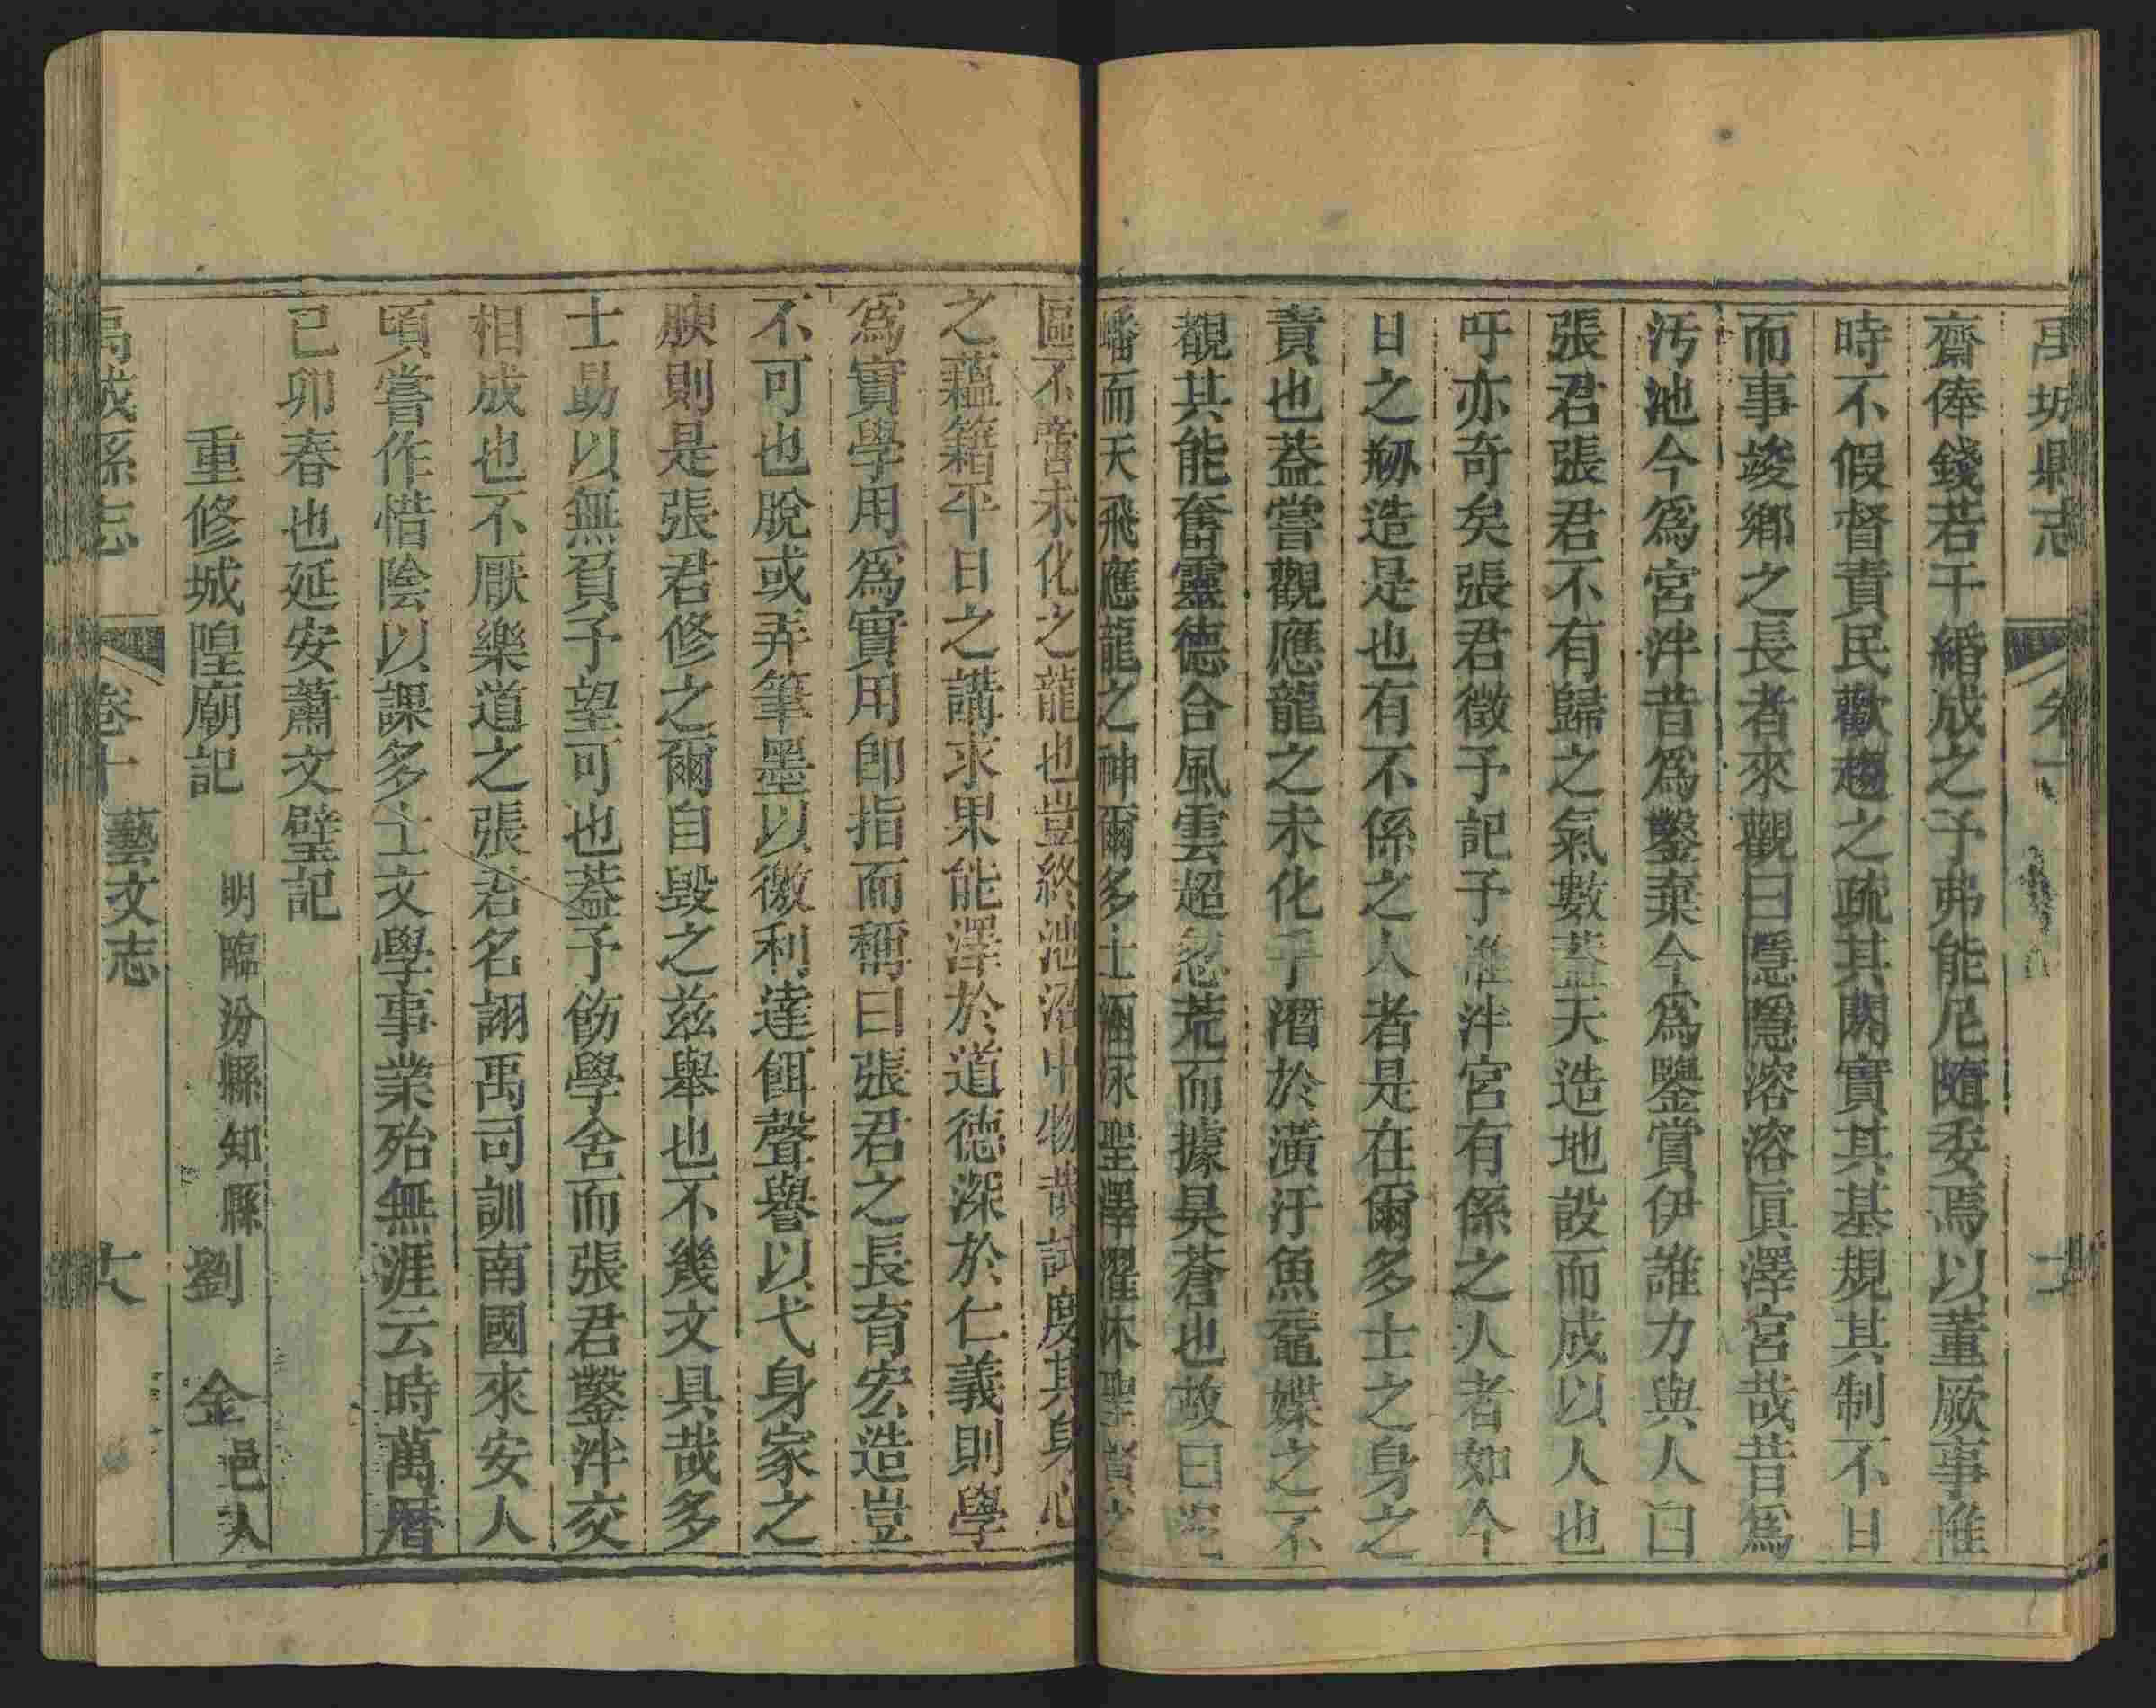 禹城縣志
齋俸錢若干緡成之予弗能尼隨委焉以董厥事惟
時不假督責民歡趨之疏其閼實其基規其制不日
而事竣鄉之長者來觀曰隱隱溶溶眞澤宮哉昔爲
汚池今爲宮泮昔爲鑿棄今爲鑒賞伊誰力與人曰
張君張君不有歸之氣數蓋天造地設而成以人也
吁亦奇矣張君徵予記予泮宮有係之人者如今
日之剙造是也有不係之人者是在爾多士之身之
責也蓋嘗觀應龍之未化乎潛於潢汙魚黿媟之不
覩其能奮靈德合風雲超忽荒而據昊蒼也故曰泥
蟠而天飛應龍之神爾多士涵泳聖澤濯沐聖賢之
區不啻未化之龍也豈終池沼中物哉試度其身心
之蘊籍平日之講求果能澤於道德深於仁義則學
爲實學用爲實用卽指而稱曰張君之長育宏造豈
不可也脫或弄筆墨以徼利達餌聲譽以弋身家之
腴則是張君修之爾自毀之兹舉也不幾文具哉多
士勗以無負予望可也蓋予飭學舍而張君鑿泮交
相成也不厭樂道之張君名詡禹司訓南國來安人
頃嘗作惜陰以課多士文學事業殆無涯云時萬曆
己卯春也延安蕭文璧記
重修城隍廟記 明臨汾縣知縣 劉 金 邑人
禹城縣志 卷十 藝文志 十八